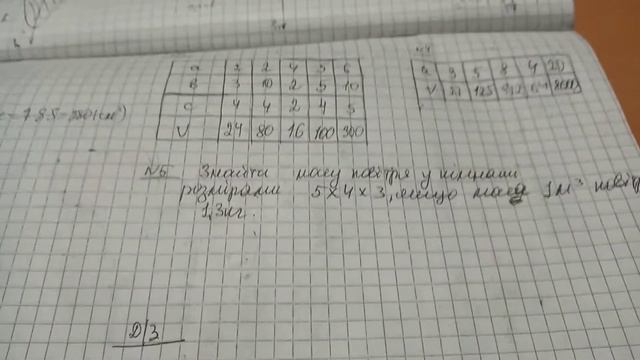 a 2 2 4 5 6
B 3 10 2 5 10
C 4 4 2 4 5
V 24 80 16 100 300
a 3 5 8 4 20
V 27 125 512 64 8000
№5 Знайти масу повітря у кімнати
розмірами 5x4x3, якщо маса 1м³
1,3кг.
Д/З